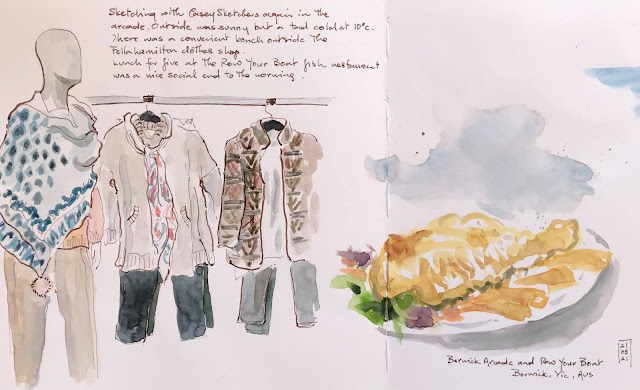 Sketching with Casey Sketchers again in the
arcade. Outside was sunny but a tad cold at 10°c.
There was a convenient bench outside The
Fella hamilton clothes shop.
Lunch for five at the Row Your Boat fish restaurant
was a nice social end to the morning.
21
05
21
Berwick Arcade and Row Your Boat
Berwick, Vic, Aus